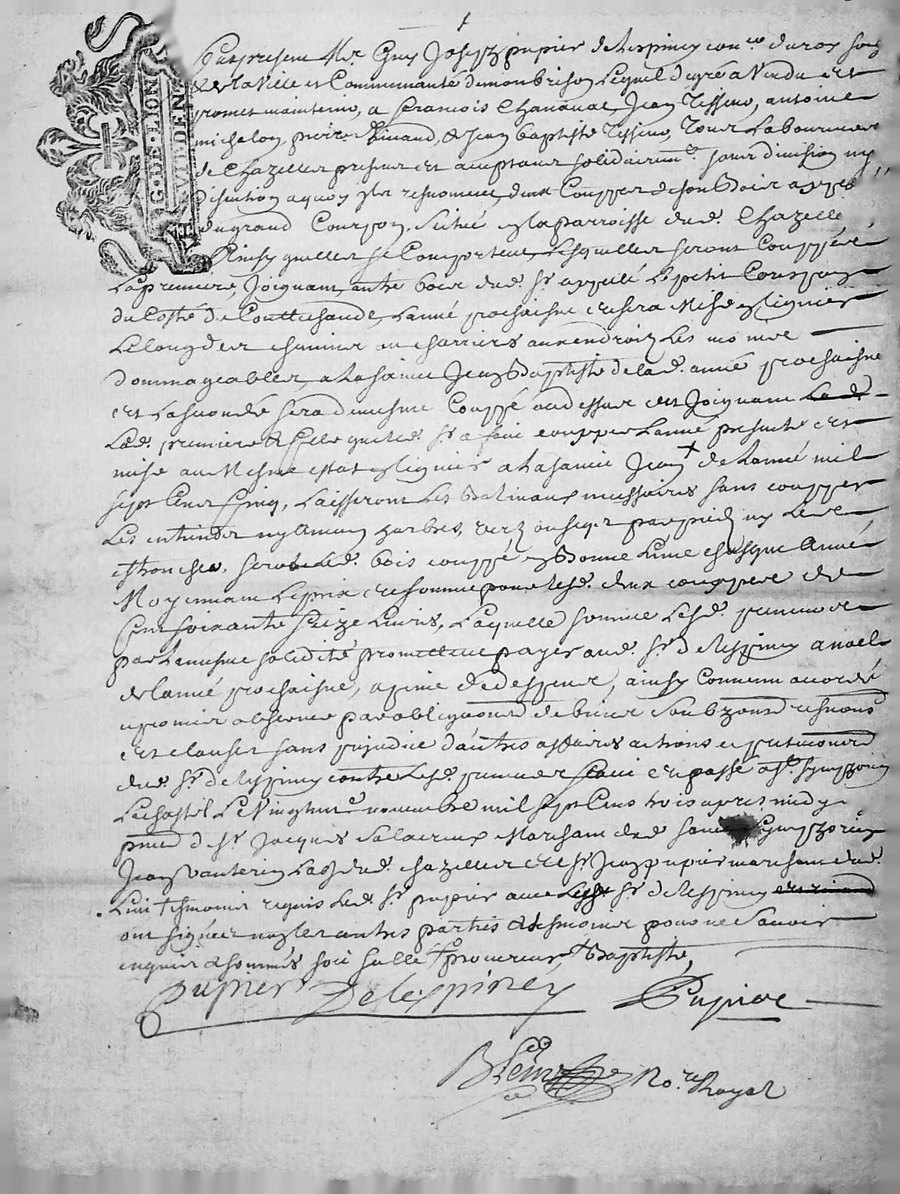 G. DE. LION
VI. DEN
Par presens Mr Guy Joseph pupier delespiney con.er du roy
de la Ville et Communauté de monbrison Lequel de gré a Vendu et
promet maintenir, a francois Chanavat, Jean Tisseur, antoine
michalon, pierre Rinaud, & Jean baptiste Tisseur, Tous Laboureurs
de Chazelles presens et acceptans solidairem.t sans division ny
discution a quoy ils renoncent, deux Couppes de son bois appellé
du grand Courson, Scitué en la parroisse dud. Chazelle
Ainsy quelles se Comportent, Lesquelles seront Couppée
La premiere, Joignant autre bois dud. Sr appellé Le petit Courson
du Costé de Couttechaude, L'anné prochaine et sera Mise en lignier
Le long des chemins ou charriere aux endroits Les moins
dommageables, a La sainct Jean Baptiste de lad. anné prochaine
et La seconde sera de mesme Couppé au dessus et Joignant
Lad. premiere & celle que led. Sr a fait coupper L'anné presente et
mise au Mesme estat en lignier a La sainct Jean de L'anné mil
sept Cens Cinq, Laisseront Les Balivaux necessaires sans coupper
bois couppé en Bonne Lune chasque Anné
Moyennant Le prix et somme pour lesd. deux couppes de
Cent soixante seize Livres, Laquelle somme Lesd. preneurs
par La mesme solidité promettent payer aud. Sr delespiney a noel
de L'anné prochaine, a peine de despens, ainsy Convenu accordé
et promis observer par obligations de biens Soubzons renons
et clauses sans prejudice d'autres affaires actions et pretentions
dud. Sr delespiney contre Lesd. preneurs faict et passé a St Simphorien
Le chastel Le Vingtun.e novembre mil sept Cens trois apres midy
pnce d. Sr Jacques Marchant dud. Saint Simphorien
Jean lab.r dud. chazelles et Sr Jean pupier marchant dud.
Lieu tesmoins requis Led. Sr pupier avec Sr delespiney
ont signé non les autres parties & tesmoins pour ne Scavoir
enquis & sommés soit scellé + preneurs + Baptiste,
Pupier Delespiney Pupier
No.re Royal